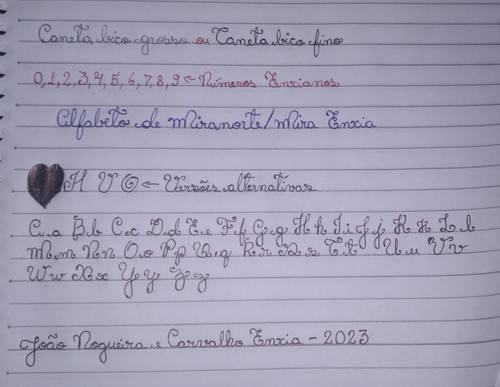 Caneta bico grosso ou Caneta bico fino
0,1,2,3,4,5,6,7,8,9 ← Números Enxianos
Alfabeto de Miranorte/Mira Enxia
H V O ← Versões alternativas
A a B b C c D d E e F f G g H h I i J j K k L l
M m N n O o P p Q q R r S s T t U u V v
W w X x Y y Z z
João Nogueira e Carvalho Enxia - 2023